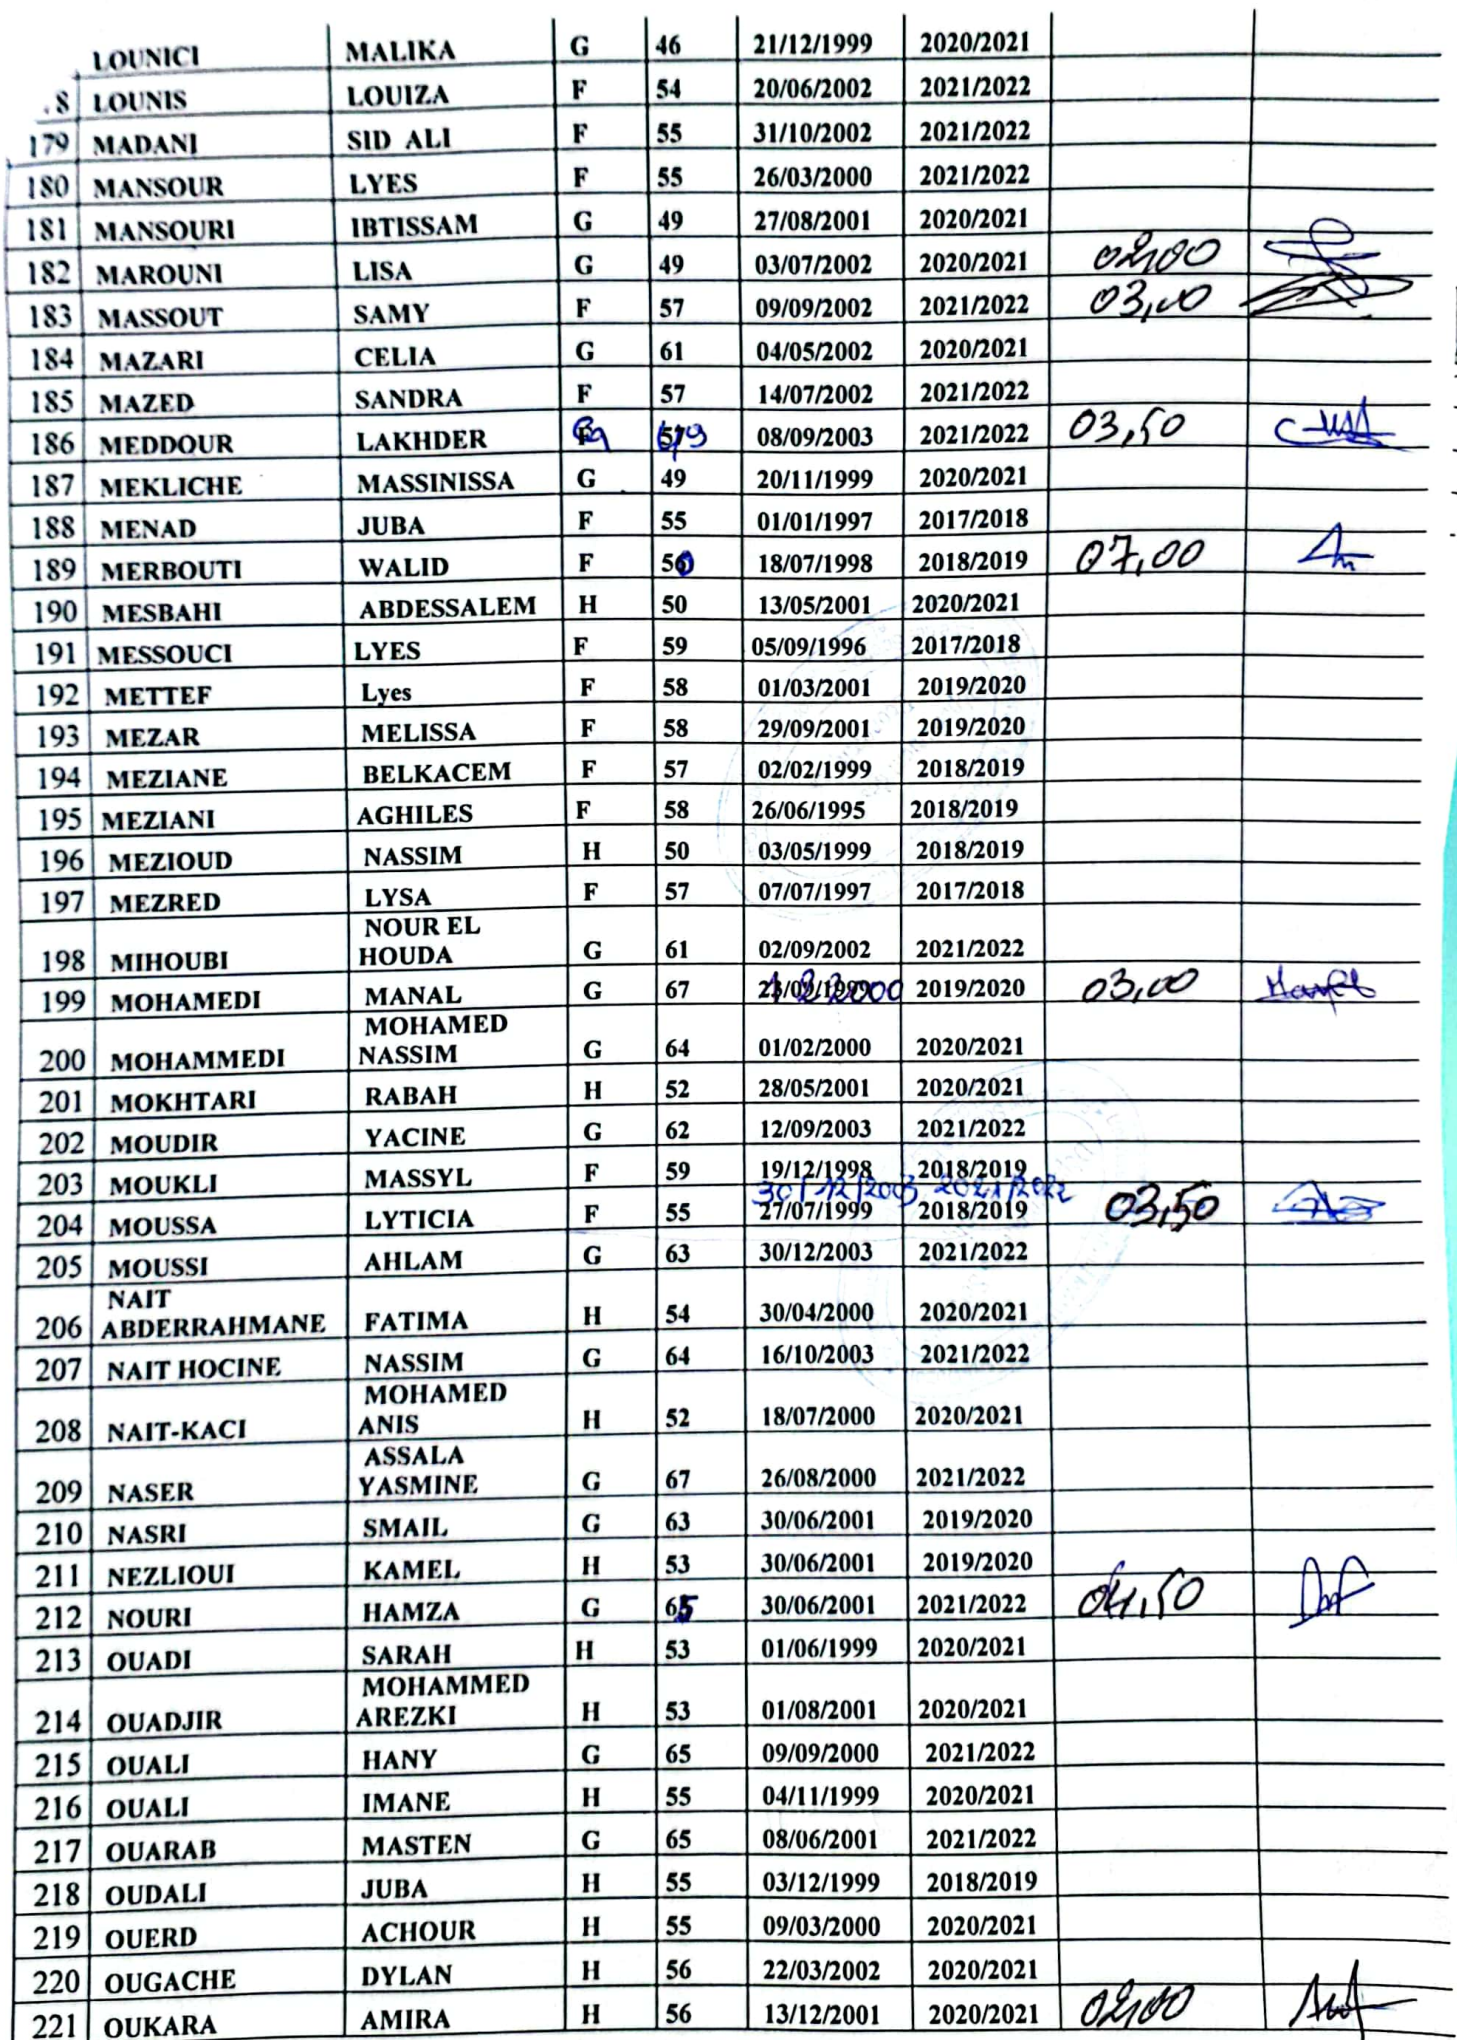 LOUNICI MALIKA G 46 21/12/1999 2020/2021
8 LOUNIS LOUIZA F 54 20/06/2002 2021/2022
179 MADANI SID ALI F 55 31/10/2002 2021/2022
180 MANSOUR LYES F 55 26/03/2000 2021/2022
181 MANSOURI IBTISSAM G 49 27/08/2001 2020/2021
182 MAROUNI LISA G 49 03/07/2002 2020/2021 02,00
183 MASSOUT SAMY F 57 09/09/2002 2021/2022 03,00
184 MAZARI CELIA G 61 04/05/2002 2020/2021
185 MAZED SANDRA F 57 14/07/2002 2021/2022
186 MEDDOUR LAKHDER 08/09/2003 2021/2022 03,50
187 MEKLICHE MASSINISSA G 49 20/11/1999 2020/2021
188 MENAD JUBA F 55 01/01/1997 2017/2018
189 MERBOUTI WALID F 50 18/07/1998 2018/2019 07,00
190 MESBAHI ABDESSALEM H 50 13/05/2001 2020/2021
191 MESSOUCI LYES F 59 05/09/1996 2017/2018
192 METTEF Lyes F 58 01/03/2001 2019/2020
193 MEZAR MELISSA F 58 29/09/2001 2019/2020
194 MEZIANE BELKACEM F 57 02/02/1999 2018/2019
195 MEZIANI AGHILES F 58 26/06/1995 2018/2019
196 MEZIOUD NASSIM H 50 03/05/1999 2018/2019
197 MEZRED LYSA F 57 07/07/1997 2017/2018
NOUR EL
198 MIHOUBI HOUDA G 61 02/09/2002 2021/2022
199 MOHAMEDI MANAL G 67 2019/2020 03,00
MOHAMED
200 MOHAMMEDI NASSIM G 64 01/02/2000 2020/2021
201 MOKHTARI RABAH H 52 28/05/2001 2020/2021
202 MOUDIR YACINE G 62 12/09/2003 2021/2022
203 MOUKLI MASSYL F 59 19/12/1998 2018/2019
30/12/2003 2021/2022
204 MOUSSA LYTICIA F 55 27/07/1999 2018/2019 03,50
205 MOUSSI AHLAM G 63 30/12/2003 2021/2022
NAIT
206 ABDERRAHMANE FATIMA H 54 30/04/2000 2020/2021
207 NAIT HOCINE NASSIM G 64 16/10/2003 2021/2022
MOHAMED
208 NAIT-KACI ANIS H 52 18/07/2000 2020/2021
ASSALA
209 NASER YASMINE G 67 26/08/2000 2021/2022
210 NASRI SMAIL G 63 30/06/2001 2019/2020
211 NEZLIOUI KAMEL H 53 30/06/2001 2019/2020
212 NOURI HAMZA G 65 30/06/2001 2021/2022 04,50
213 OUADI SARAH H 53 01/06/1999 2020/2021
MOHAMMED
214 OUADJIR AREZKI H 53 01/08/2001 2020/2021
215 OUALI HANY G 65 09/09/2000 2021/2022
216 OUALI IMANE H 55 04/11/1999 2020/2021
217 OUARAB MASTEN G 65 08/06/2001 2021/2022
218 OUDALI JUBA H 55 03/12/1999 2018/2019
219 OUERD ACHOUR H 55 09/03/2000 2020/2021
220 OUGACHE DYLAN H 56 22/03/2002 2020/2021
221 OUKARA AMIRA H 56 13/12/2001 2020/2021 02,00